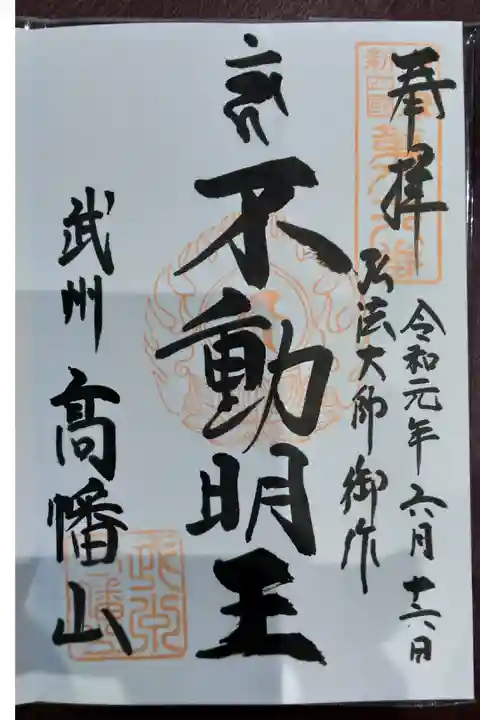 奉拝
令和元年六月十六日
弘法大師御作
不動明王
武州 高幡山